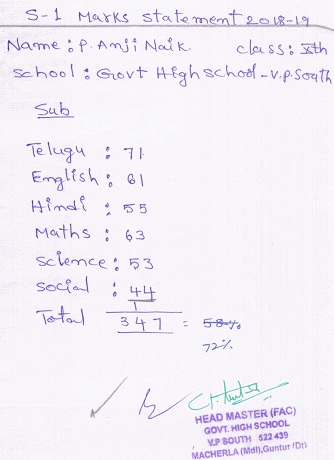 S-1 Marks statement 2018-19
Name: P. Anji Naik. class: Xth
School: Govt High School-V.P. South
Sub
Telugu : 71
English : 61
Hindi : 55
Maths : 63
Science : 53
Social : 44
Total 347 = 58%
72%
HEAD MASTER (FAC)
GOVT. HIGH SCHOOL
V.P SOUTH 522 439
MACHERLA (Mdl), Guntur (Dt)